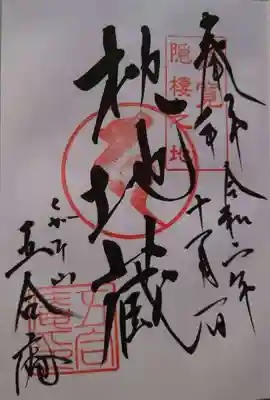 奉拝 令和六年
良寛
隠棲之地
枕地蔵
くがみ山
五合庵